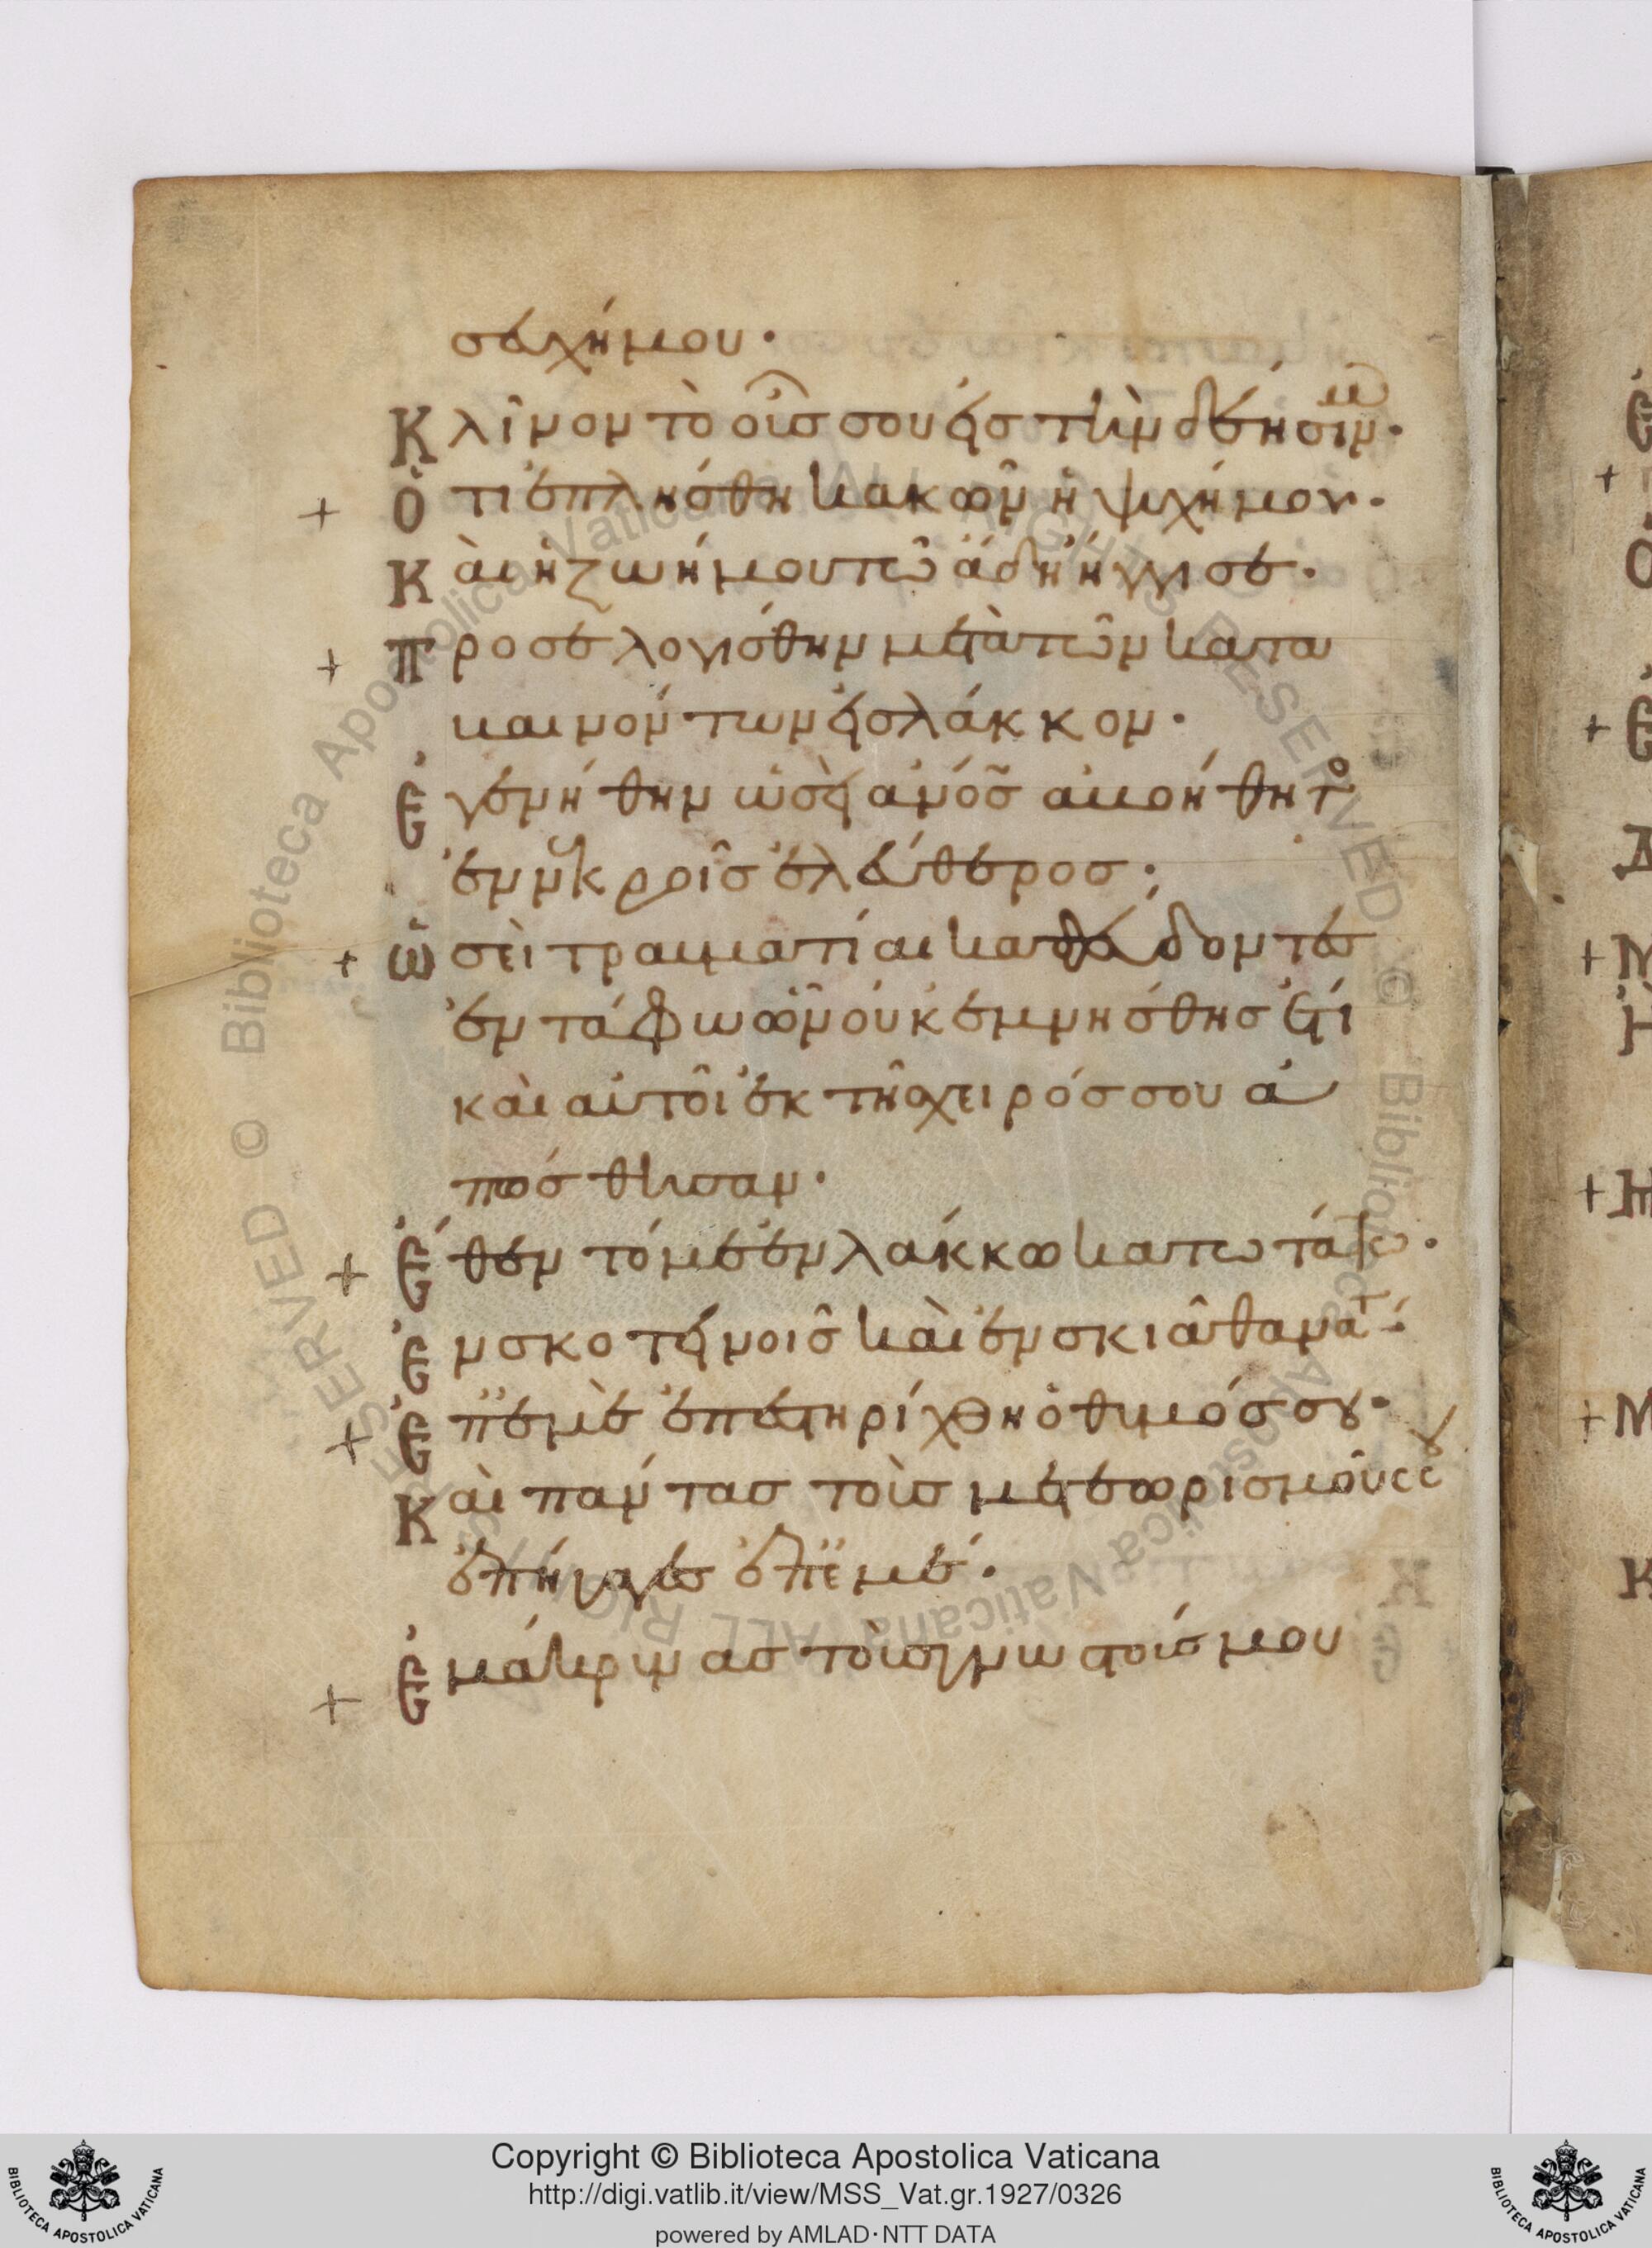 σευχή μου·
Κλῖνον τὸ οὖς σου εἰς τὴν δέησίν μου·
+ Ὅτι ἐπλήσθη κακῶν ἡ ψυχή μου·
Κὰι ἡ ζωή μου τῶ ἅδη ἤγγισε·
+ Προσελογίσθην μετὰ τῶν κατα
βαινόντων εἰς λάκκον·
Ἐγενήθην ὡσεὶ ἄνος ἀβοήθητο
ἐν νεκροῖς ἐλεύθερος·
+ Ὡσεὶ τραυματίαι καθεύδοντες
ἐν τάφω ὧν οὐκ ἐμνήσθης ἔτι
κὰι αὐτοὶ ἐκ τῆς χειρός σου ἀ
πώσθησαν·
+ Ἔθεντό με ἐν λάκκω κατωτάτω·
Ἐν σκοτεινοῖς κὰι ἐν σκιᾶ θανάτ·
+ Ἐπ ἐμὲ ἐπεστηρίχθη ὁ θυμός σου·
Κὰι πάντας τοὺς μετεωρισμοῦς σου
ἐπήγαγες ἐπ ἐμέ·
+ Ἐμάκρυνας τοὺς γνωστούς μου
Copyright © Biblioteca Apostolica Vaticana
http://digi.vatlib.it/view/MSS_Vat.gr.1927/0326
powered by AMLAD·NTT DATA
BIBLIOTECA APOSTOLICA VATICANA
BIBLIOTECA APOSTOLICA VATICANA